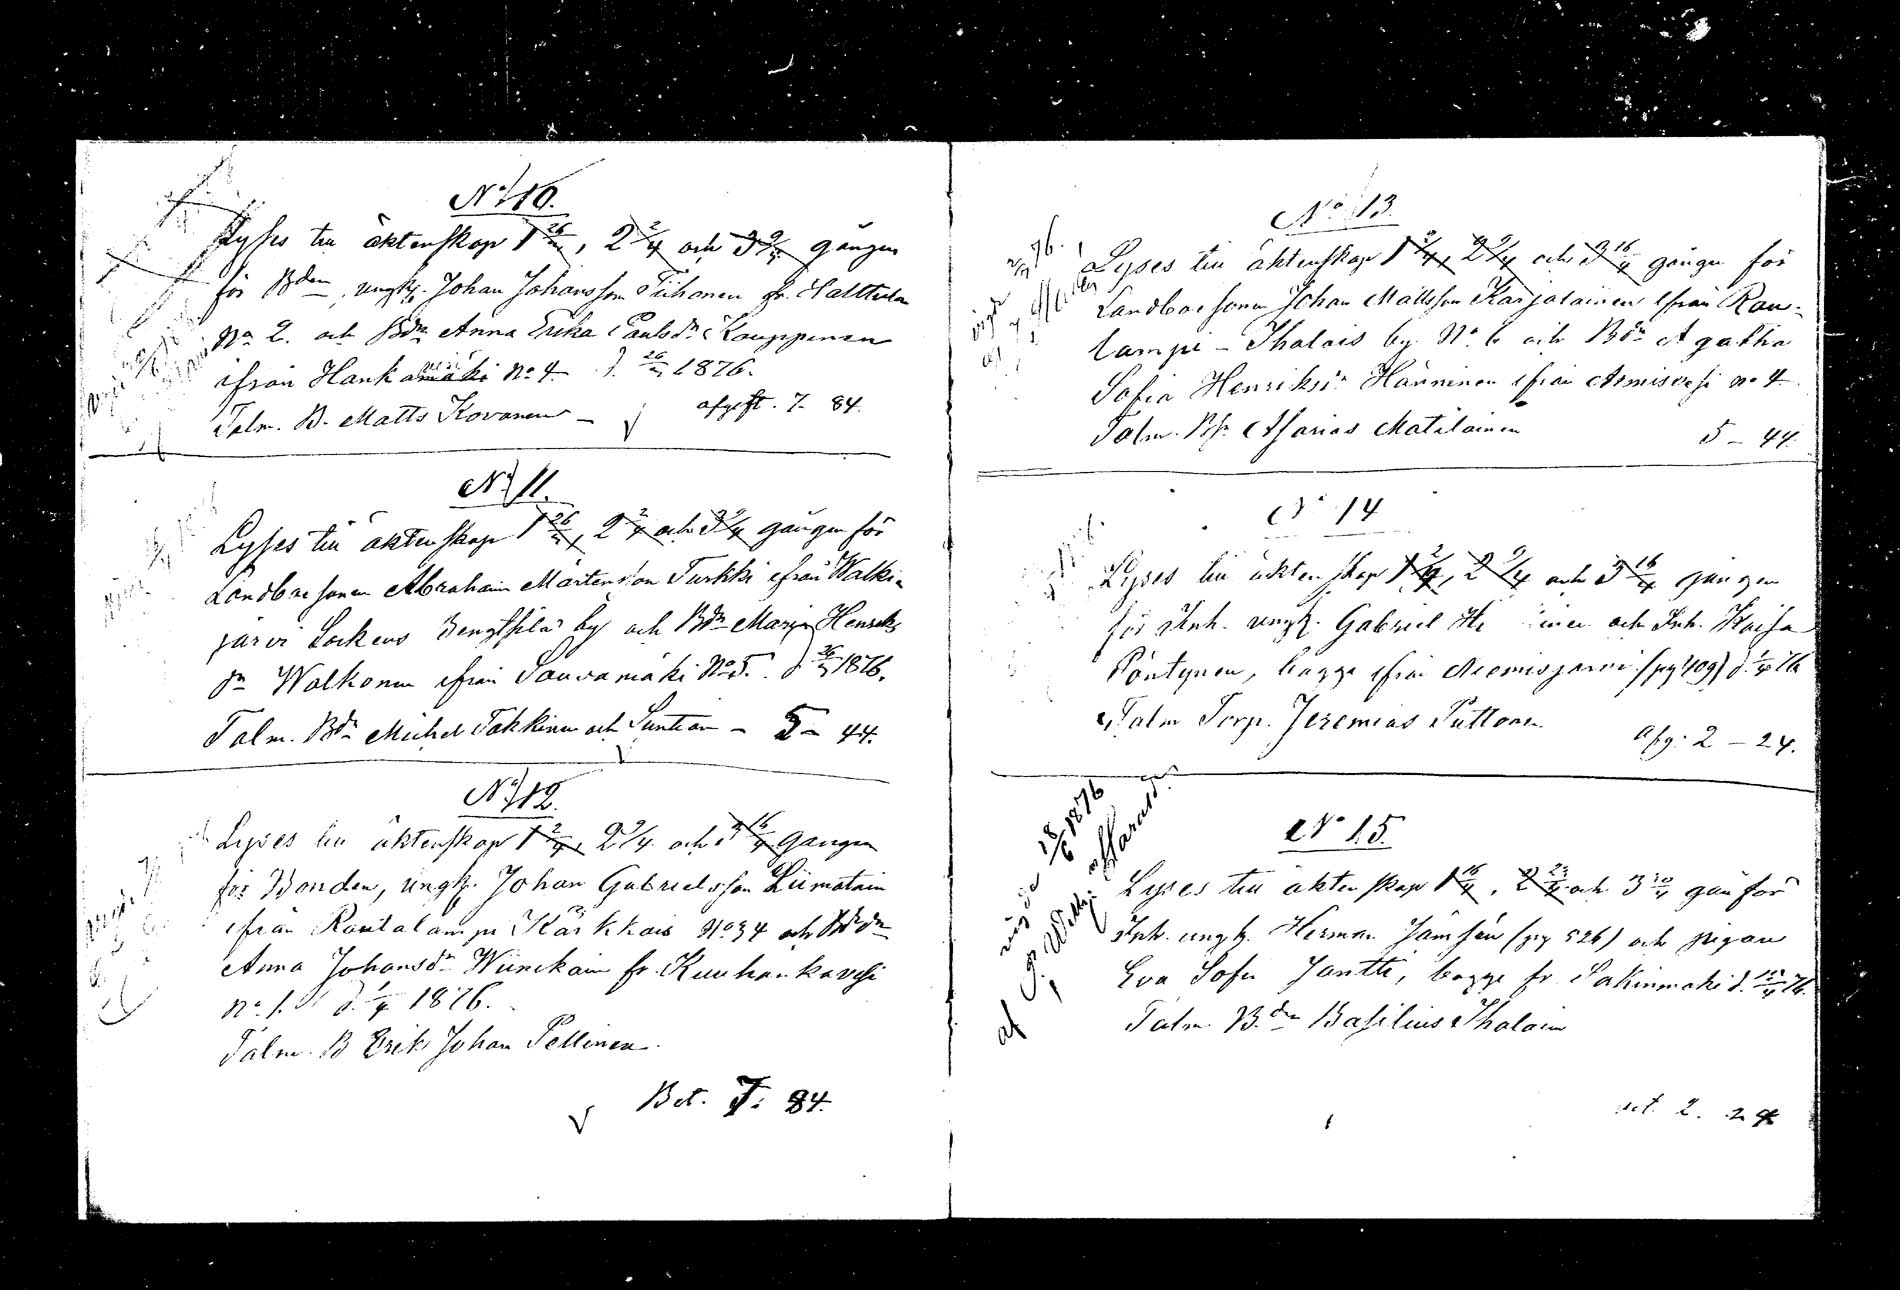 No 10.
Lyses till äktenskap 1 26/3, 2 2/4 och 3 9/4 gången
för Bden, ungk. Johan Johansson Tiihonen fr. Halttula
No 2. och Bdr Anna Erika Paulsdr Kauppinen
ifrån Hankamäki No 4. d. 26/3 1876.
Talm. B. Matts Kovanen –
afgift. 7. 84.
No 11.
Lyses till äktenskap 1 26/3, 2 2/4 och 3 9/4 gången för
Landboesonen Abraham Mårtensson Turkki ifrån Walke-
järvi Sockens by och Bdr Maria Henriks
dr Walkonen ifrån Sauvamäki No 5. d 26/3 1876.
Talm. Bdn Michel Takkinen och Suntian – 5 – 44.
No 12.
Lyses till äktenskap 1 2/4, 2 9/4 och 3 16/4 gången
för Bonden, ungk. Johan Gabrielsson Liimatain
ifrån Rautalampi Kärkkais No 34 och Bdr
Anna Johansdr Wiinikain fr. Kuuhankavesi
No 1. d. 1/4 1876.
Talm. B Erik Johan Pellinen.
Bet. 7. 84.
No 13.
Lyses till äktenskap 1 2/4, 2 9/4 och 3 16/4 gången för
Landboesonen Johan Mattsson Karjalainen ifrån Rau-
lampi – Ihalais by No 6 och Bdr Agatha
Sofia Henriksdr Hänninen ifrån Armisvesi No 4.
Talm. Asarias Matilainen
5 – 44.
No 14
Lyses till äktenskap 1 2/4, 2 9/4 och 3 16/4 gången
för Inh. ungk. Gabriel och Inh. Kaisa
Pöntynen, bägge ifrån Niemisjärvi (pg 409) d. 1/4 76
Talm Torp. Jeremias Puttonen
afg. 2 – 24.
No 15.
Lyses till äktenskap 1 16/4, 2 23/4 och 3 30/4 gån för
Inh. ungk. Herman Jämsén (pg 526) och pigan
Eva Sofia Jantti, bägge fr. d. 76.
Talm. Bden Basilius Ihalain
bet. 2. 24
vigde 18/6 1876
af